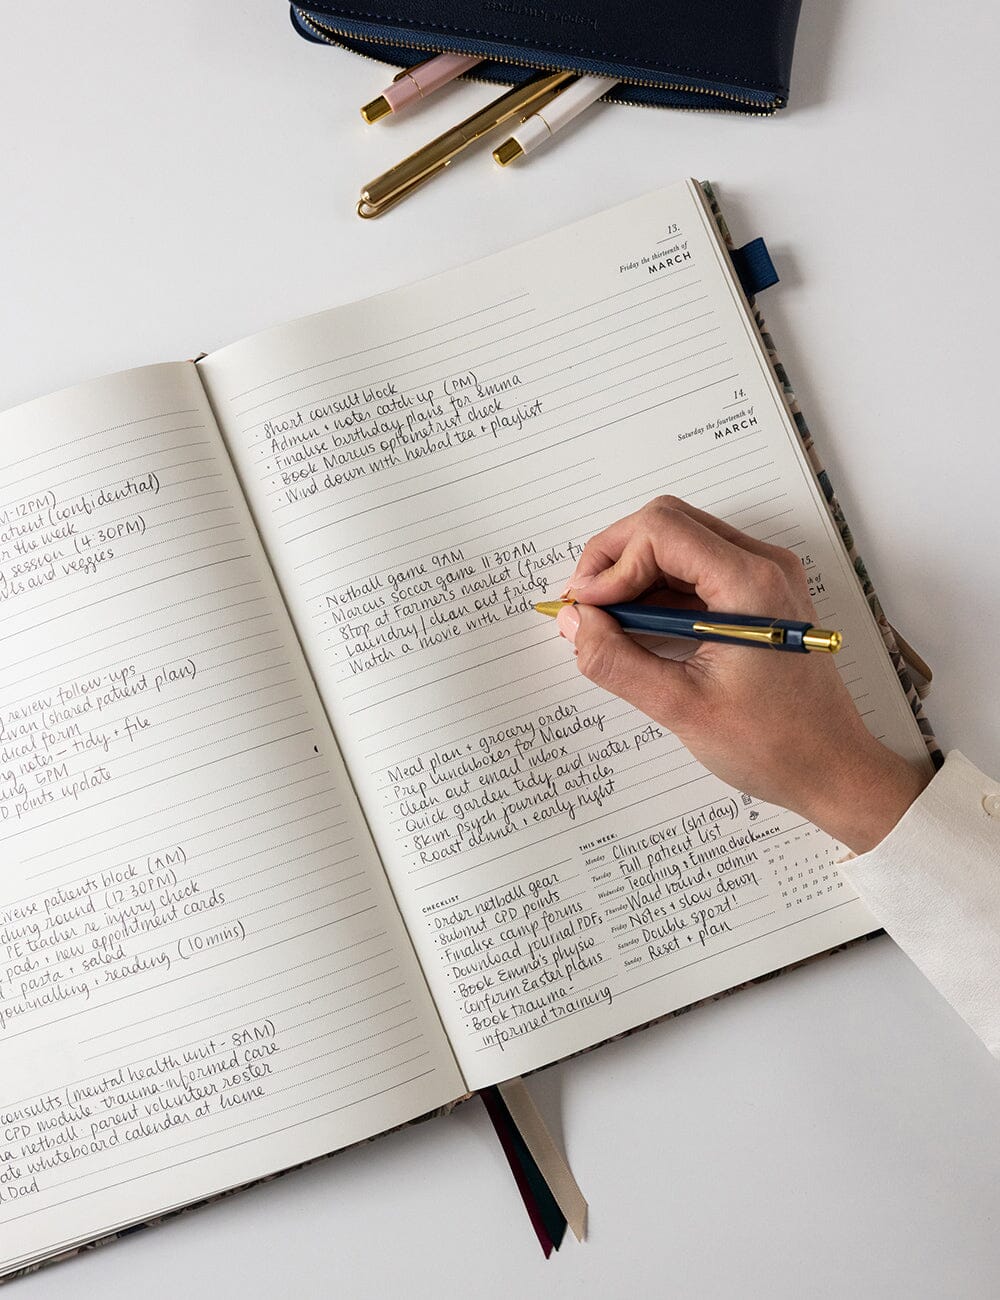 M-12PM)
atient (confidential)
r the week
g session (4:30PM)
and veggies
g review follow-ups
kwan (shared patient plan)
dical form
ng notes - tidy + file
ing 5PM
D points update
iverse patients block (AM)
ching round (12:30PM)
PE teacher re injury check
pads + new appointment cards
pasta + salad
journalling + reading (10 mins)
consults (mental health unit - 8AM)
CPD module: trauma-informed care
na netball: parent volunteer roster
ate whiteboard calendar at home
Dad
13.
Friday the thirteenth of
MARCH
· Short consult block
· Admin + notes catch up (PM)
· Finalise birthday plans for Emma
· Book Marcus optometrist check
· Wind down with herbal tea + playlist
14.
Saturday the fourteenth of
MARCH
· Netball game 9AM
· Marcus soccer game 11:30AM
· Stop at Farmer's market (fresh fr
· Laundry / clean out fridge
· Watch a movie with kids
15.
of
CH
· Meal plan + grocery order
· Prep lunchboxes for Monday
· Clean out email inbox
· Quick garden tidy and water pots
· Skim psych journal articles
· Roast dinner + early night
CHECKLIST
· Order netball gear
· Submit CPD points
· Finalise camp forms
· Download journal PDFs
· Book Emma's physio
· Confirm Easter plans
· Book trauma-
informed training
THIS WEEK:
Monday Clinic over (sht day)
Tuesday Full patient list
Wednesday Teaching + Emma check
Thursday Ward round + admin
Friday Notes + slow down
Saturday Double sport!
Sunday Reset + plan
MARCH
MO TU WE TH FR SA SU
30 31
2 3 4 5 6 7 8
9 10 11 12 13 14
16 17 18 19 20
23 24 25 26 27